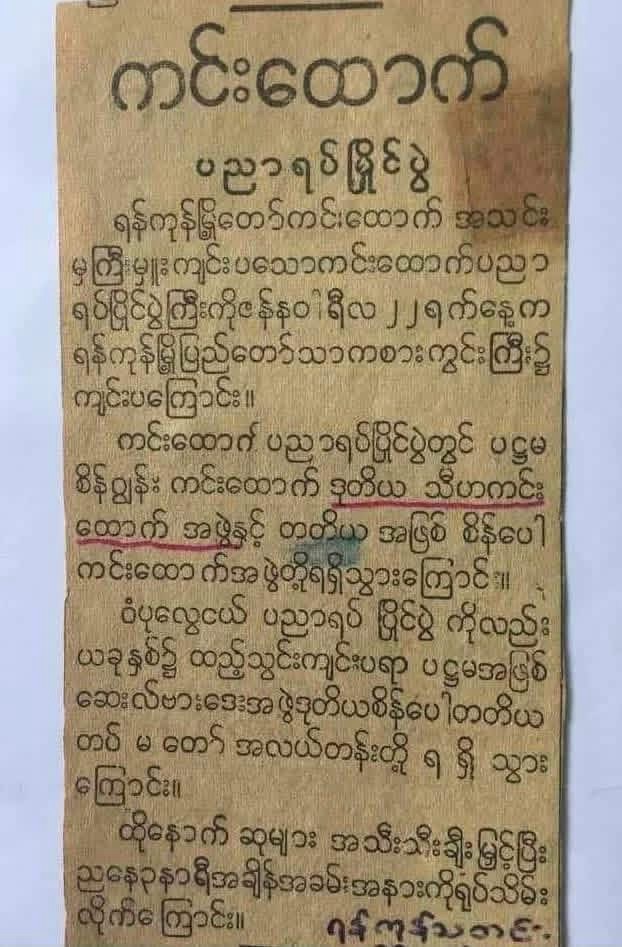 ကင်းထောက်
ပညာရပ်မြှိုင်ပွဲ
ရန်ကုန်မြို့တော်ကင်းထောက် အသင်း
မှကြီးမှူးကျင်းပသောကင်းထောက်ပညာ
ရပ်ပြိုင်ပွဲကြီးကိုဇန်နဝါရီလ ၂၂ရက်နေ့က
ရန်ကုန်မြို့ပြည်တော်သာကစားကွင်းကြီး၌
ကျင်းပကြောင်း။
ကင်းထောက် ပညာရပ်ပြိုင်ပွဲတွင် ပဋ္ဌမ
စိန်ဂျွန်း ကင်းထောက် ဒုတိယ သီဟကင်း
ထောက် အဖွဲ့နှင့် တတိယ အဖြစ် စိန်ပေါ
ကင်းထောက်အဖွဲ့တို့ရရှိသွားကြောင်း။
ဝံပုလွေငယ် ပညာရပ် ပြိုင်ပွဲ ကိုလည်း
ယခုနှစ်၌ ထည့်သွင်းကျင်းပရာ ပဋ္ဌမအဖြစ်
ဆေးလ်ဗားဒေးအဖွဲ့ဒုတိယစိန်ပေါတတိယ
တပ် မ တော် အလယ်တန်းတို့ ရ ရှိ သွား
ကြောင်း။
ထိုနောက် ဆုများ အသီးသီးချီးမြှင့်ပြီး
ညနေ၃နာရီအချိန်အခမ်းအနားကိုရုပ်သိမ်း
လိုက်ကြောင်း။ ရန်ကုန်သတင်း